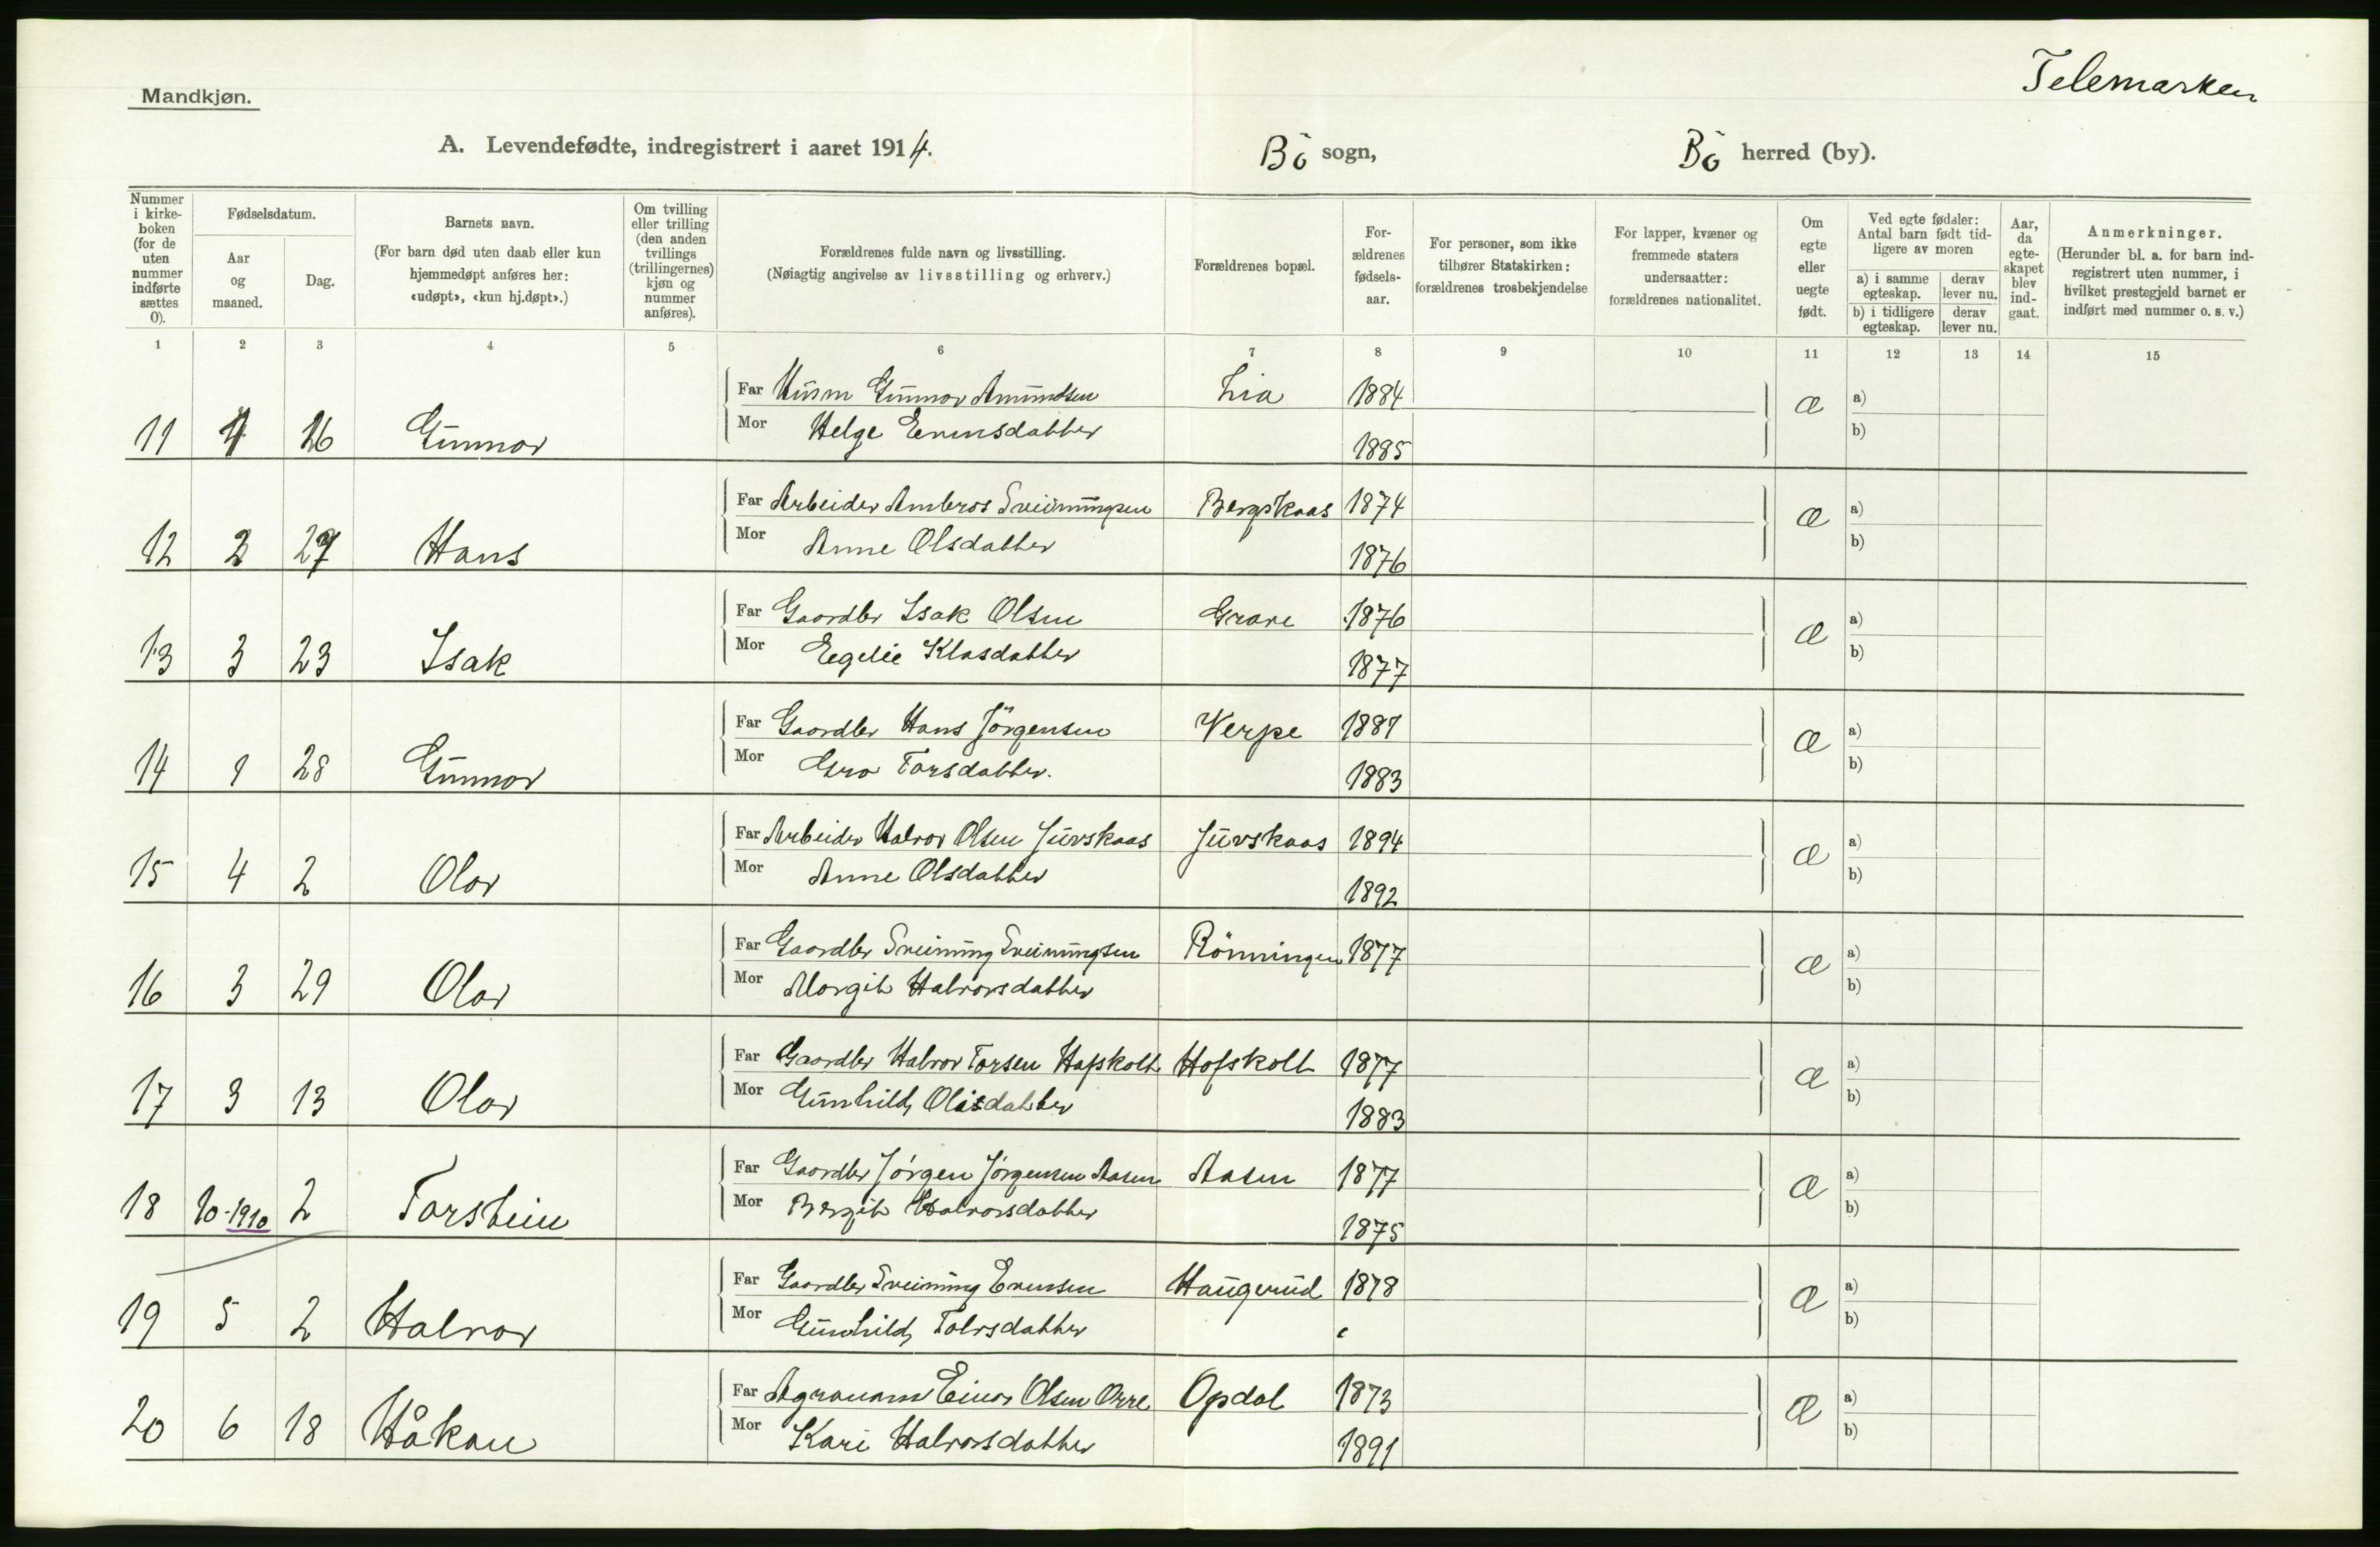 Telemarken
Mandkjøn.
A. Levendefødte, indregistrert i aaret 1914.
Bö sogn,
Bö herred (by).
Nummer i kirke-boken (for de uten nummer indførte sættes 0).
Fødselsdatum.
Aar og maaned.
Dag.
Barnets navn.
(For barn død uten daab eller kun hjemmedøpt anføres her: «udøpt», «kun hj.døpt».)
Om tvilling eller trilling (den anden tvillings (trillingernes) kjøn og nummer anføres).
Forældrenes fulde navn og livsstilling.
(Nøiagtig angivelse av livsstilling og erhverv.)
Forældrenes bopæl.
For-ældrenes fødsels-aar.
For personer, som ikke tilhører Statskirken: forældrenes trosbekjendelse
For lapper, kvæner og fremmede staters undersaatter: forældrenes nationalitet.
Om egte eller uegte født.
Ved egte fødsler: Antal barn født tid-ligere av moren
a) i samme egteskap.
derav lever nu.
b) i tidligere egteskap.
derav lever nu.
Aar, da egte-skapet blev ind-gaat.
Anmerkninger.
(Herunder bl. a. for barn ind-registrert uten nummer, i hvilket prestegjeld barnet er indført med nummer o. s. v.)
1 2 3 4 5 6 7 8 9 10 11 12 13 14 15
Far Husm Gunnar Amundsen Lia 1884 æ a)
11 26 Gunnar Mor Helge Evensdatter 1885 b)
Far Arbeider Ambros Sveinungsen Bergskaas 1874 æ a)
12 2 27 Hans Mor Anne Olsdatter 1876 b)
Far Gaardbr Isak Olsen Grave 1876 æ a)
13 3 23 Isak Mor Egelie Klasdatter 1877 b)
Far Gaardbr Hans Jörgensen Verpe 1887 æ a)
14 1 28 Gunnar Mor Gro Tarsdatter. 1883 b)
Far Arbeider Halvor Olsen Juvskaas Juvskaas 1894 æ a)
15 4 2 Olav Mor Anne Olsdatter 1892 b)
Far Gaardbr Sveinung Sveinungsen Rönningen 1877 æ a)
16 3 29 Olav Mor Margit Halvorsdatter b)
Far Gaardbr Halvor Torsen Hafskolt Hofskolt 1877 æ a)
17 3 13 Olav Mor Gunhild Olasdatter 1883 b)
Far Gaardbr Jörgen Jörgensen Aasen Aasen 1877 æ a)
18 10-1910 2 Torstein Mor Bergit Halvorsdatter 1875 b)
Far Gaardbr Sveinung Evensen Haugerud 1878 æ a)
19 5 2 Halvor Mor Gunhild Tovsdatter b)
Far Agronom Einar Olsen Orre Opdal 1873 æ a)
20 6 18 Håkon Mor Kari Halvorsdatter 1891 b)